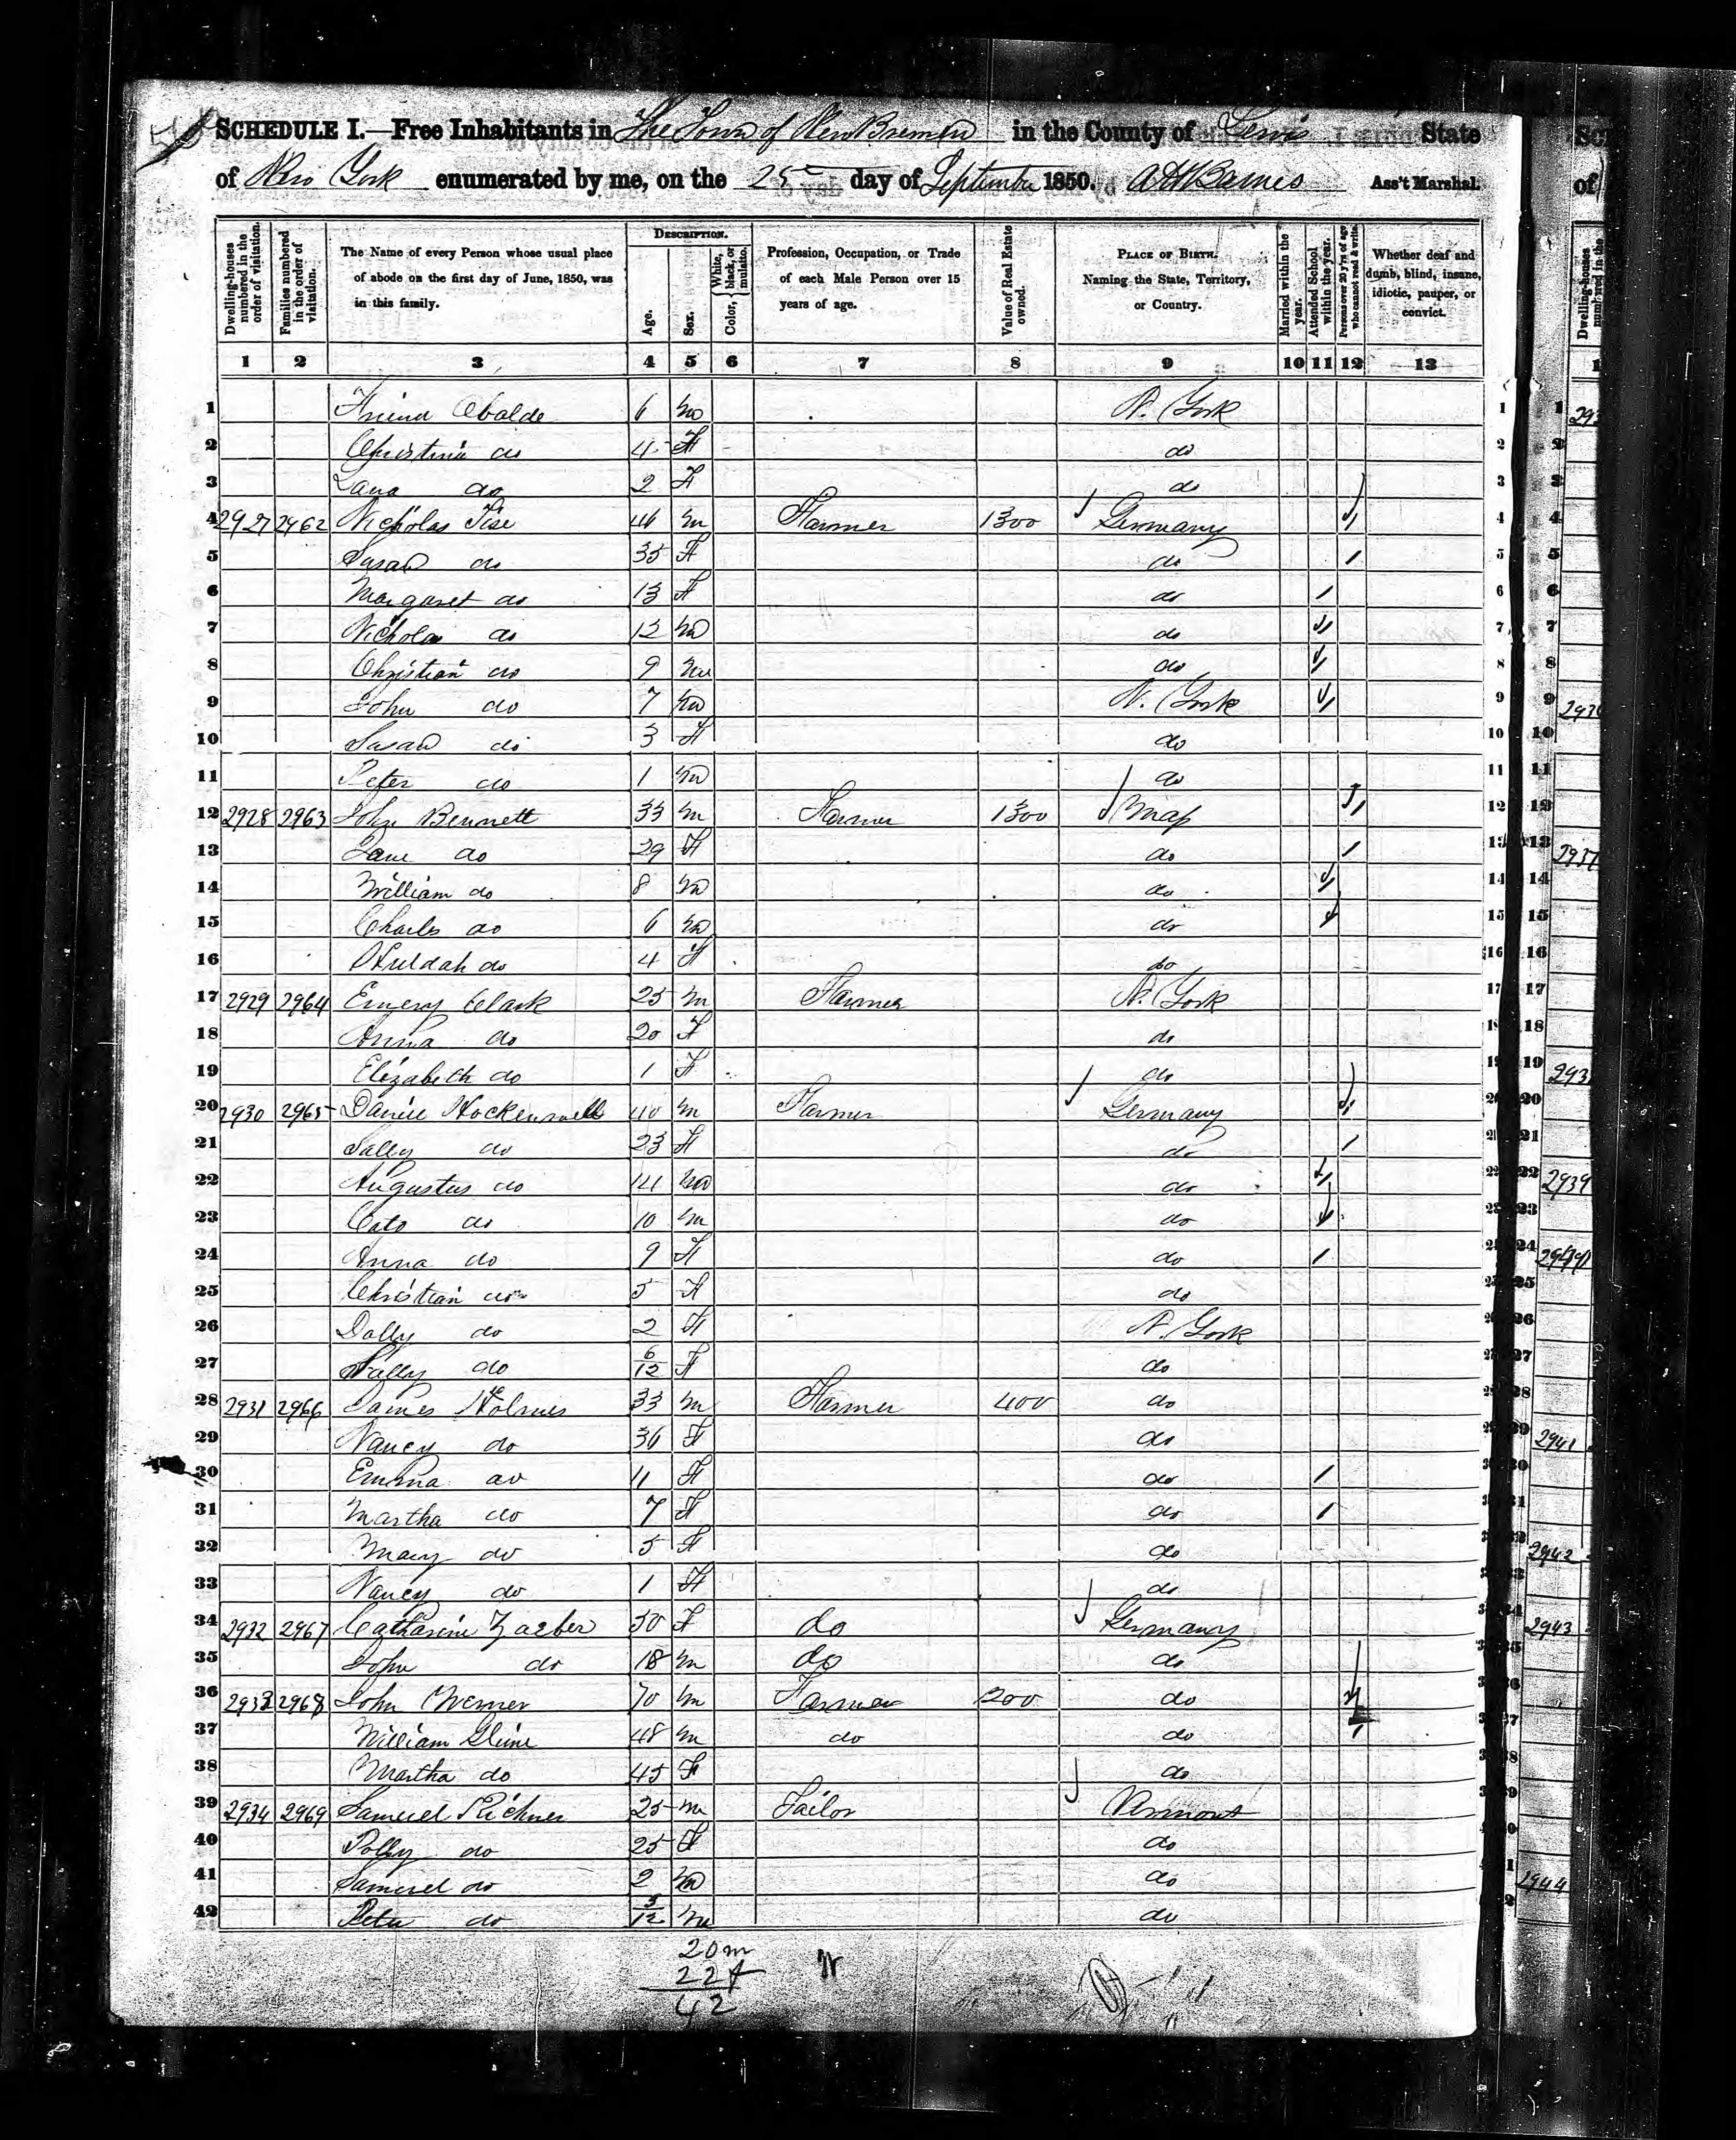 SCHEDULE I.—Free Inhabitants in The Town of New Bremen in the County of Lewis State
of New York enumerated by me, on the 25 day of September 1850. A H Barnes Ass't Marshal.
Dwelling-houses numbered in the order of visitation.
Families numbered in the order of visitation.
The Name of every Person whose usual place of abode on the first day of June, 1850, was in this family.
DESCRIPTION.
Age.
Sex.
Color, White, black, or mulatto.
Profession, Occupation, or Trade of each Male Person over 15 years of age.
Value of Real Estate owned.
PLACE OF BIRTH. Naming the State, Territory, or Country.
Married within the year.
Attended School within the year.
Persons over 20 y'rs of age who cannot read & write.
Whether deaf and dumb, blind, insane, idiotic, pauper, or convict.
1 2 3 4 5 6 7 8 9 10 11 12 13
1 6 m N. York 1
2 Christina do 4 F do 2
3 Lana do 2 F do 3
4 2927 2962 Nicholas Tise 46 m Farmer 1300 Germany 4
5 Susan do 35 F do 5
6 Margaret do 13 F do 6
7 Nicholas do 12 m do 7
8 Christian do 9 m do 8
9 John do 7 m N. York 9
10 Susan do 3 F do 10
11 Peter do 1 m do 11
12 2928 2963 John Bennett 33 m Farmer 1300 Mas 12
13 Jane do 29 F do 13
14 William do 8 m do 14
15 Charles do 6 m do 15
16 Huldah do 4 F do 16
17 2929 2964 Emery Clark 25 m Farmer N. York 17
18 Anna do 20 F do 18
19 Elizabeth do 1 F do 19
20 2930 2965 Daniel 40 m Farmer Germany 20
21 Sally do 23 F do 21
22 Augustus do 14 m do 22
23 Cato do 10 m do 23
24 Anna do 9 F do 24
25 Christian do 5 F do 25
26 Dolly do 2 F N. York 26
27 Sally do 6/12 F do 27
28 2931 2966 James Holmes 33 m Farmer 400 do 28
29 Nancy do 36 F do 29
30 Emma do 11 F do 30
31 Martha do 7 F do 31
32 Mary do 5 F do 32
33 Nancy do 1 F do 33
34 2932 2967 Catharine 50 F do Germany 34
35 John do 18 m do do 35
36 2933 2968 John 70 m Farmer 200 do 36
37 William 48 m do do 37
38 Martha do 45 F do 38
39 2934 2969 Samuel 25 m Tailor Vermont 39
40 Polly do 25 F do
41 Samuel do 2 m do
42 Peter do 5/12 m do
20 m
22 f
42